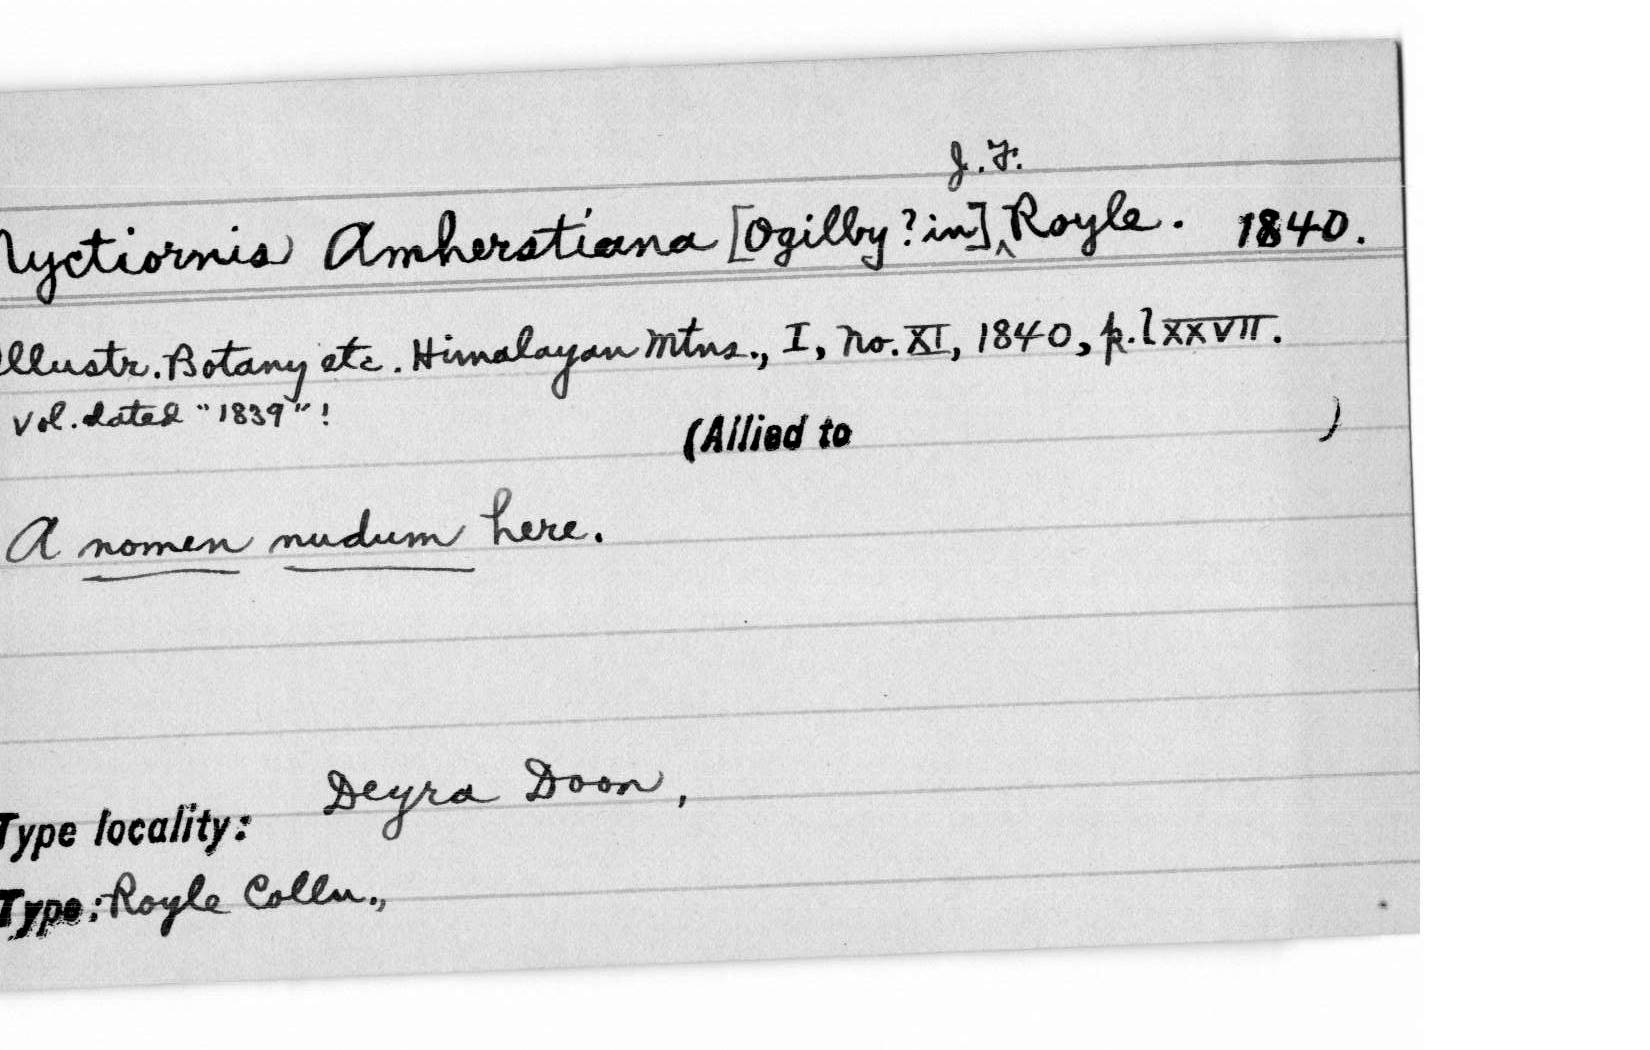 J.F.
Nyctiornis Amherstiana [Ogilby? in] ‸ Royle. 1840.
Illustr. Botany etc. Himalayan Mtns., I, No. XI, 1840, p. lxxvii.
Vol. dated "1839"!
(Allied to )
A nomen nudum here.
Deyra Doon,
Type locality:
Type: Royle Colln.,